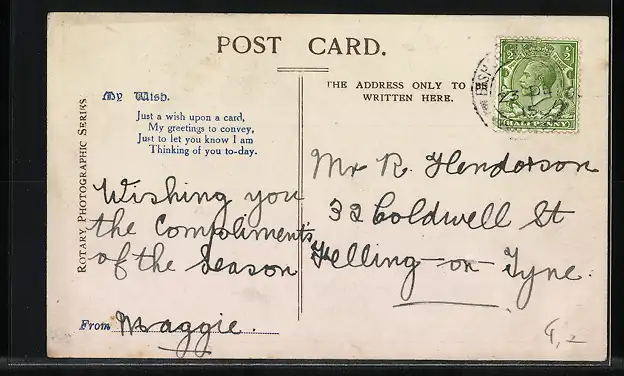 POST CARD.
THE ADDRESS ONLY TO BE
WRITTEN HERE.
My Wish.
Just a wish upon a card,
My greetings to convey,
Just to let you know I am
Thinking of you to-day.
ROTARY PHOTOGRAPHIC SERIES
Wishing you
the Compliments
of the Season
From Maggie.
Mr R. Henderson
32 Coldwell St
Felling-on-Tyne.
HALFPENNY